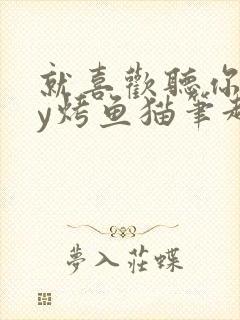 就喜歡聽你
y烤鱼猫筆趣
夢入莊蝶